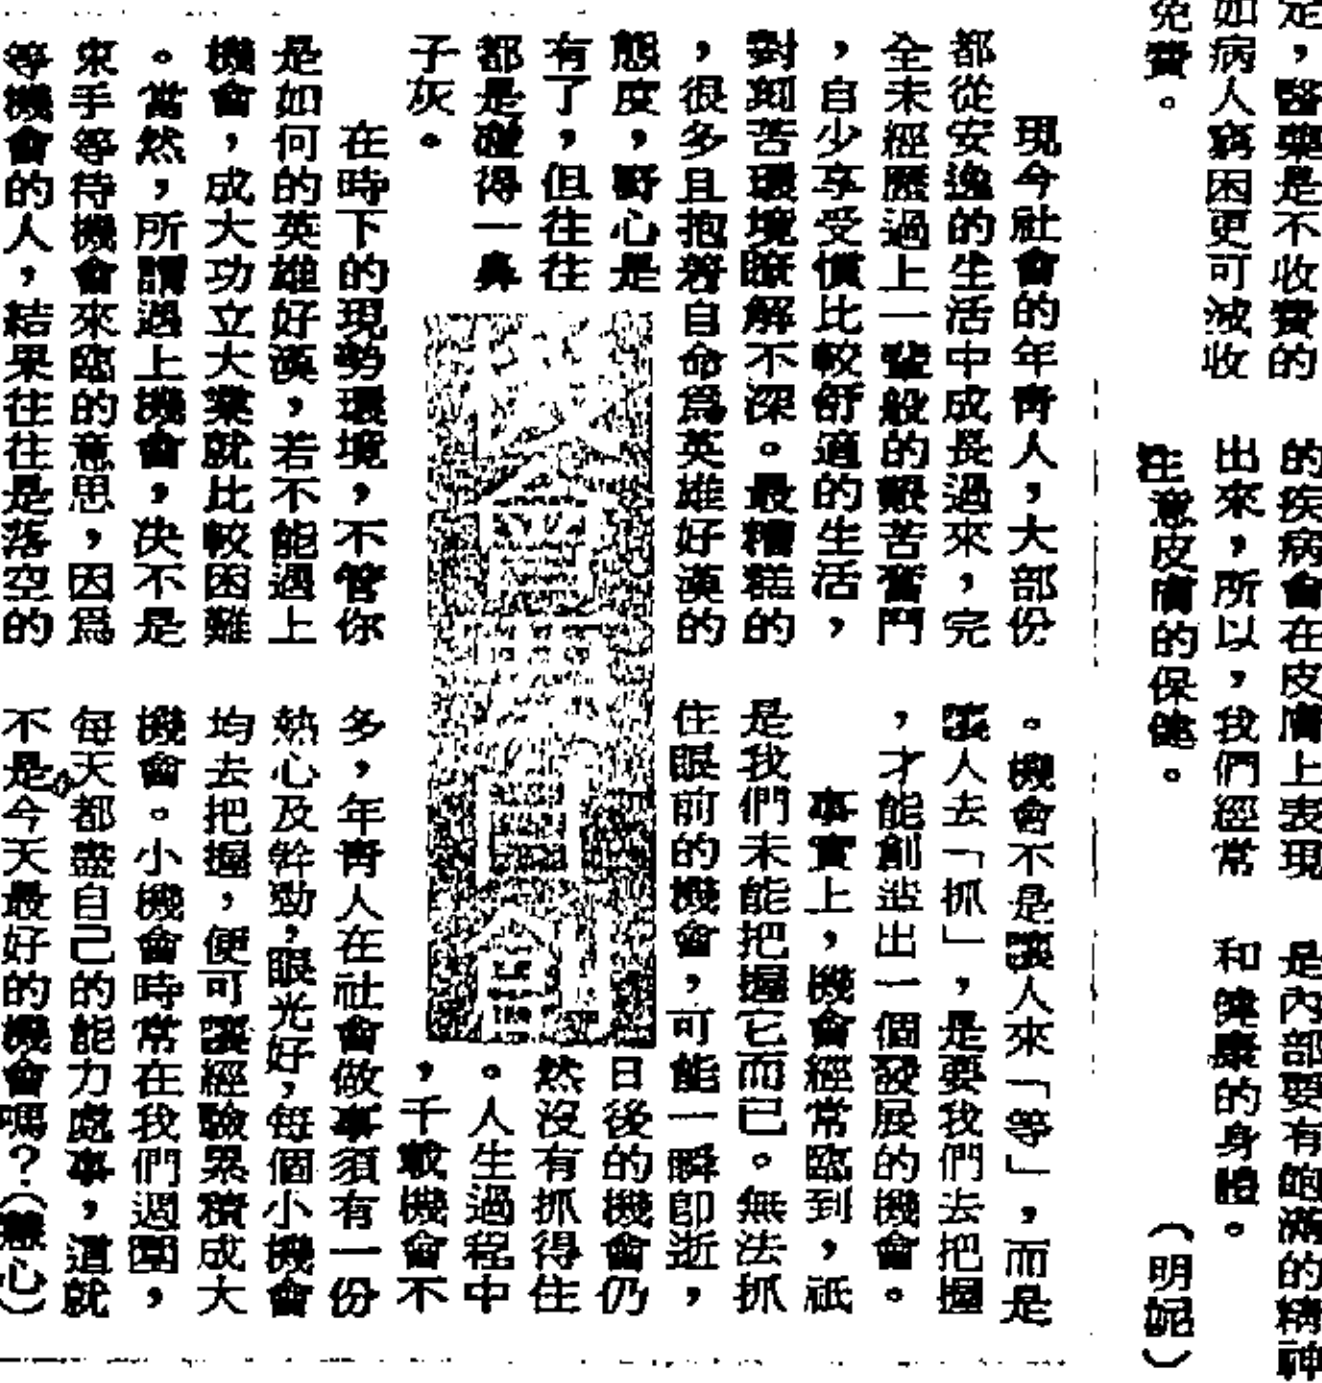 定，醫藥是不收費的
如病人窮困更可減收
免費。
的疾病會在皮膚上表現
出來，所以，我們經常
注意皮膚的保健。
是內部要有飽滿的精神
和健康的身體。
（明妮）
現今社會的年青人，大部份
都從安逸的生活中成長過來，完
全未經歷過上一輩般的艱苦奮鬥
，自少享受慣比較舒適的生活，
對刻苦環境瞭解不深。最糟糕的
，很多且抱着自命爲英雄好漢的
態度，野心是
有了，但往往
都是碰得一鼻
子灰。
在時下的現勢環境，不管你
是如何的英雄好漢，若不能遇上
機會，成大功立大業就比較困難
。當然，所謂遇上機會，決不是
束手等待機會來臨的意思，因爲
等機會的人，結果往往是落空的
。機會不是讓人來「等」，而是
讓人去「抓」，是要我們去把握
，才能創造出一個發展的機會。
事實上，機會經常臨到，祇
是我們未能把握它而已。無法抓
住眼前的機會，可能一瞬即逝，
日後的機會仍
然沒有抓得住
。人生過程中
，千載機會不
多，年青人在社會做事須有一份
熱心及幹勁，眼光好，每個小機會
均去把握，便可讓經驗累積成大
機會。小機會時常在我們週圍，
每天都盡自己的能力處事，這就
不是今天最好的機會嗎？（慧心）